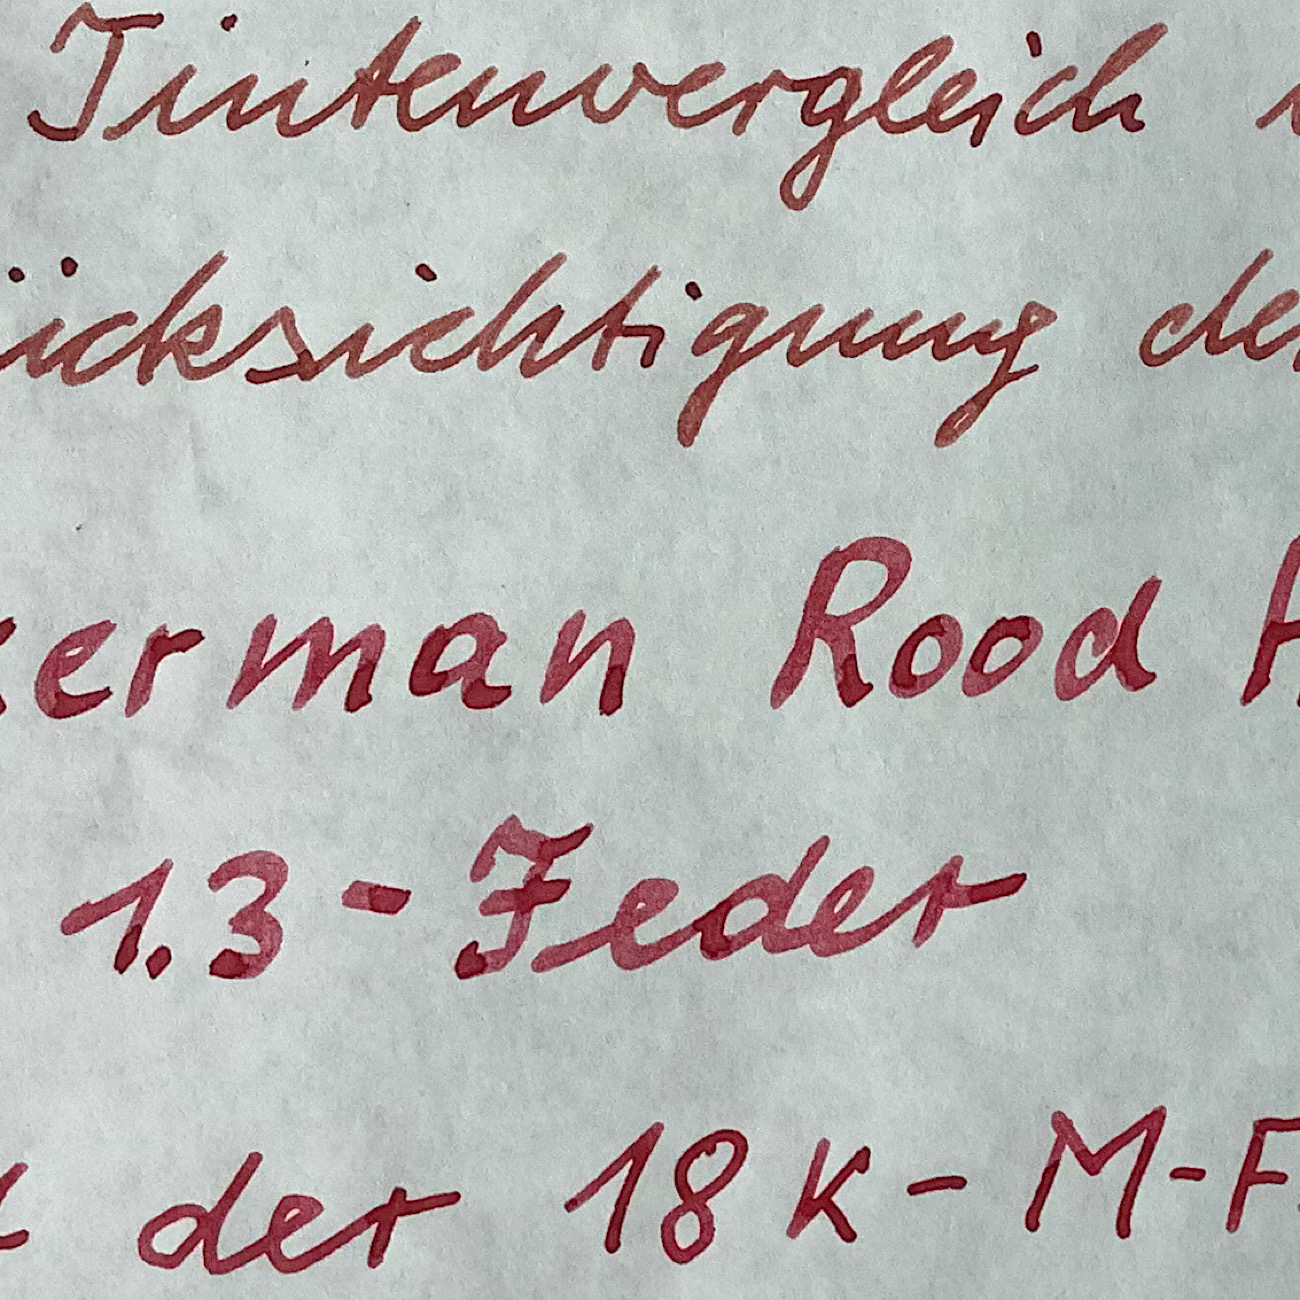 Tintenvergleich
ücksichtigung de
kerman Rood
1.3-Feder
der 18K-M-F